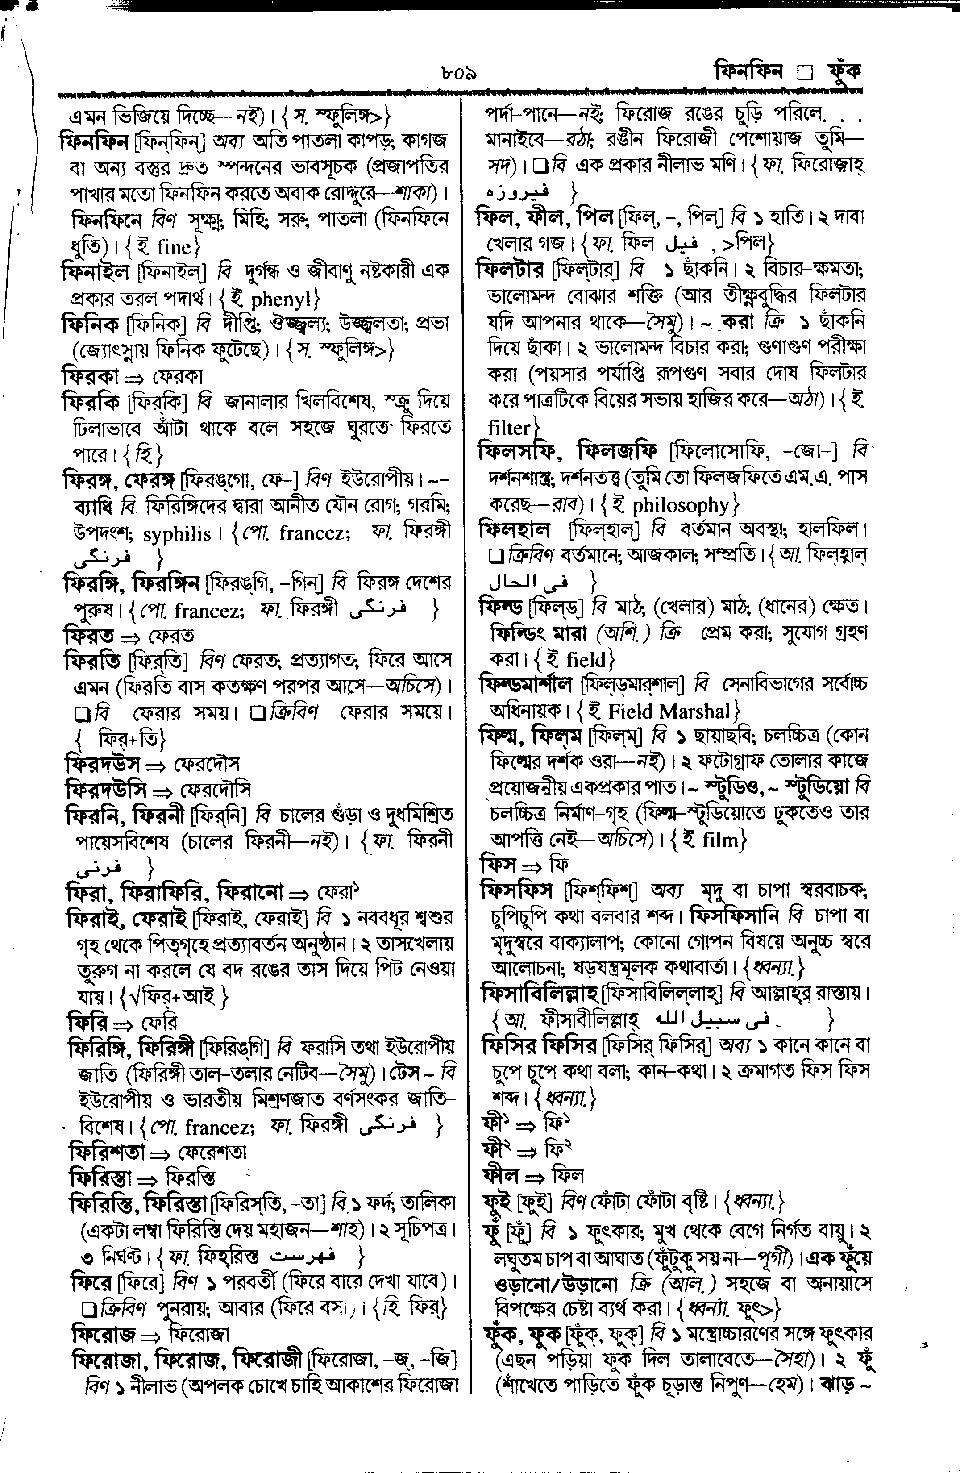 ৮০৯
ফিনফিন □ ফুঁক
এমন ভিজিয়ে দিচ্ছে—নই)। {স. স্ফুলিঙ্গ>}
ফিনফিন [ফিন্‌ফিন্] অব্য অতি পাতলা কাপড়, কাগজ
বা অন্য বস্তুর দ্রুত স্পন্দনের ভাবসূচক (প্রজাপতির
পাখার মতো ফিনফিন করতে অবাক রোদ্দুরে—শাকা)।
ফিনফিনে বিণ সূক্ষ্ম; মিহি; সরু; পাতলা (ফিনফিনে
ধুতি)। {ই fine}
ফিনাইল [ফিনাইল্] বি দুর্গন্ধ ও জীবাণু নষ্টকারী এক
প্রকার তরল পদার্থ। {ই phenyl}
ফিনিক [ফিনিক্] বি দীপ্তি; ঔজ্জ্বল্য; উজ্জ্বলতা; প্রভা
(জ্যোৎস্নায় ফিনিক ফুটেছে)। {স. স্ফুলিঙ্গ>}
ফিরকা ⇒ ফেরকা
ফিরকি [ফির্‌কি] বি জানালার খিলবিশেষ, স্ক্রু দিয়ে
ঢিলাভাবে আঁটা থাকে বলে সহজে ঘুরতে ফিরতে
পারে। {হি}
ফিরঙ্গ, ফেরঙ্গ [ফিরঙ্‌গো, ফে-] বিণ ইউরোপীয়। ~-
ব্যাধি বি. ফিরিঙ্গিদের দ্বারা আনীত যৌন রোগ; গরমি;
উপদংশ; syphilis। {পো. francez; ফা. ফিরঙ্গী
فرنگی }
ফিরঙ্গি, ফিরঙ্গিন [ফিরঙ্‌গি, -গিন্] বি ফিরঙ্গ দেশের
পুরুষ। {পো. francez; ফা. ফিরঙ্গী فرنگی }
ফিরত ⇒ ফেরত
ফিরতি [ফির্‌তি] বিণ ফেরত, প্রত্যাগত; ফিরে আসে
এমন (ফিরতি বাস কতক্ষণ পরপর আসে—অচিসে)।
□ বি ফেরার সময়। □ ক্রিবিণ ফেরার সময়ে।
{ ফির্+তি}
ফিরদউস ⇒ ফেরদৌস
ফিরদউসি ⇒ ফেরদৌসি
ফিরনি, ফিরনী [ফির্‌নি] বি চালের গুঁড়া ও দুধমিশ্রিত
পায়েসবিশেষ (চালের ফিরনী—নই)। {ফা. ফিরনী
فرنی }
ফিরা, ফিরাফিরি, ফিরানো ⇒ ফেরা¹
ফিরাই, ফেরাই [ফিরাই, ফেরাই] বি ১ নববধূর শ্বশুর
গৃহ থেকে পিতৃগৃহে প্রত্যাবর্তন অনুষ্ঠান। ২ তাসখেলায়
তুরুগ না করলে যে বদ রঙের তাস দিয়ে পিট নেওয়া
যায়। {√ফির্+আই }
ফিরি ⇒ ফেরি
ফিরিঙ্গি, ফিরিঙ্গী [ফিরিঙ্‌গি] বি ফরাসি তথা ইউরোপীয়
জাতি (ফিরিঙ্গী তাল-তলার নেটিব—সৈমু)। টেস ~ বি
ইউরোপীয় ও ভারতীয় মিশ্রণজাত বর্ণসংকর জাতি-
বিশেষ। {পো. francez; ফা. ফিরঙ্গী فرنگی }
ফিরিশতা ⇒ ফেরেশতা
ফিরিস্তা ⇒ ফিরস্তি
ফিরিস্তি, ফিরিস্তা [ফিরিস্‌তি, -তা] বি ১ ফর্দ, তালিকা
(একটা লম্বা ফিরিস্তি দেয় মহাজন—শাহ)। ২ সূচিপত্র।
৩ নির্ঘণ্ট। {ফা. ফিহ্‌রিস্ত فهرست }
ফিরে [ফিরে] বিণ ১ পরবর্তী (ফিরে বারে দেখা যাবে)।
□ ক্রিবিণ পুনরায়; আবার (ফিরে বস।)। {হি. ফির্}
ফিরোজ ⇒ ফিরোজা
ফিরোজা, ফিরোজ, ফিরোজী [ফিরোজা, -জ্, -জি]
বিণ ১ নীলাভ (অপলক চোখে চাহি আকাশের ফিরোজা
পর্দা-পানে—নই; ফিরোজ রঙের চুড়ি পরিলে. . .
মানাইবে—রঠা; রঙীন ফিরোজী পেশোয়াজ তুমি—
সদ)। □ বি এক প্রকার নীলাভ মণি। {ফা. ফিরোজাহ্
فیروزه }
ফিল, ফীল, পিল [ফিল্, -, পিল্] বি ১ হাতি। ২ দাবা
খেলার গজ। {ফা. ফিল فیل , >পিল}
ফিলটার [ফিল্‌টার্] বি ১ ছাঁকনি। ২ বিচার-ক্ষমতা;
ভালোমন্দ বোঝার শক্তি (আর তীক্ষ্ণবুদ্ধির ফিলটার
যদি আপনার থাকে—সৈমু)। ~ করা ক্রি ১ ছাঁকনি
দিয়ে ছাঁকা। ২ ভালোমন্দ বিচার করা; গুণাগুণ পরীক্ষা
করা (পয়সার পর্যাপ্তি রূপগুণ সবার দোষ ফিলটার
করে পাত্রটিকে বিয়ের সভায় হাজির করে—অঠা)। {ই
filter}
ফিলসফি, ফিলজফি [ফিলোসোফি, -জো-] বি
দর্শনশাস্ত্র; দর্শনতত্ত্ব (তুমি তো ফিলজফিতে এম.এ. পাস
করেছ—রাব)। {ই philosophy}
ফিলহাল [ফিল্‌হাল্] বি বর্তমান অবস্থা; হালফিল।
□ ক্রিবিণ বর্তমানে; আজকাল; সম্প্রতি। {আ. ফিল্‌হাল্
فی الحال }
ফিল্ড [ফিল্‌ড্] বি মাঠ; (খেলার) মাঠ; (ধানের) ক্ষেত।
ফিল্ডিং মারা (অশি.) ক্রি প্রেম করা; সুযোগ গ্রহণ
করা। {ই field}
ফিল্ডমার্শাল [ফিল্‌ড্‌মার্‌শাল্] বি সেনাবিভাগের সর্বোচ্চ
অধিনায়ক। {ই Field Marshal}
ফিল্ম, ফিল্‌ম [ফিল্‌ম্] বি ১ ছায়াছবি; চলচ্চিত্র (কোন
ফিল্মের দর্শক ওরা—নই)। ২ ফটোগ্রাফ তোলার কাজে
প্রয়োজনীয় একপ্রকার পাত। ~ স্টুডিও, ~ স্টুডিয়ো বি
চলচ্চিত্র নির্মাণ-গৃহ (ফিল্ম-স্টুডিয়োতে ঢুকতেও তার
আপত্তি নেই—অচিসে)। {ই film}
ফিস ⇒ ফি
ফিসফিস [ফিশ্‌ফিশ্] অব্য মৃদু বা চাপা স্বরবাচক;
চুপিচুপি কথা বলবার শব্দ। ফিসফিসানি বি চাপা বা
মৃদুস্বরে বাক্যালাপ; কোনো গোপন বিষয়ে অনুচ্চ স্বরে
আলোচনা; ষড়যন্ত্রমূলক কথাবার্তা। {ধ্বন্যা.}
ফিসাবিলিল্লাহ [ফিসাবিলিল্‌লাহ্] বি আল্লাহ্‌র রাস্তায়।
{আ. ফীসাবীলিল্লাহ্ فی سبیل الله }
ফিসির ফিসির [ফিসির্ ফিসির্] অব্য ১ কানে কানে বা
চুপে চুপে কথা বলা; কান-কথা। ২ ক্রমাগত ফিস ফিস
শব্দ। {ধ্বন্যা.}
ফী¹ ⇒ ফি¹
ফী² ⇒ ফি²
ফীল ⇒ ফিল
ফুই [ফুই] বিণ ফোঁটা ফোঁটা বৃষ্টি। {ধ্বন্যা.}
ফুঁ [ফুঁ] বি ১ ফুৎকার; মুখ থেকে বেগে নির্গত বায়ু। ২
লঘুতম চাপ বা আঘাত (ফুঁটুকু সয় না—পূর্গী)। এক ফুঁয়ে
ওড়ানো/উড়ানো ক্রি (আল.) সহজে বা অনায়াসে
বিপক্ষের চেষ্টা ব্যর্থ করা। {ধ্বন্যা. ফুৎ>}
ফুঁক, ফুক [ফুঁক্, ফুক্] বি ১ মন্ত্রোচ্চারণের সঙ্গে ফুৎকার
(এছন পড়িয়া ফুক দিল তালাবেতে—সৈহা)। ২ ফুঁ
(শাঁখেতে পাড়িতে ফুঁক চূড়ান্ত নিপুণ—হেম)। ঝাড় ~